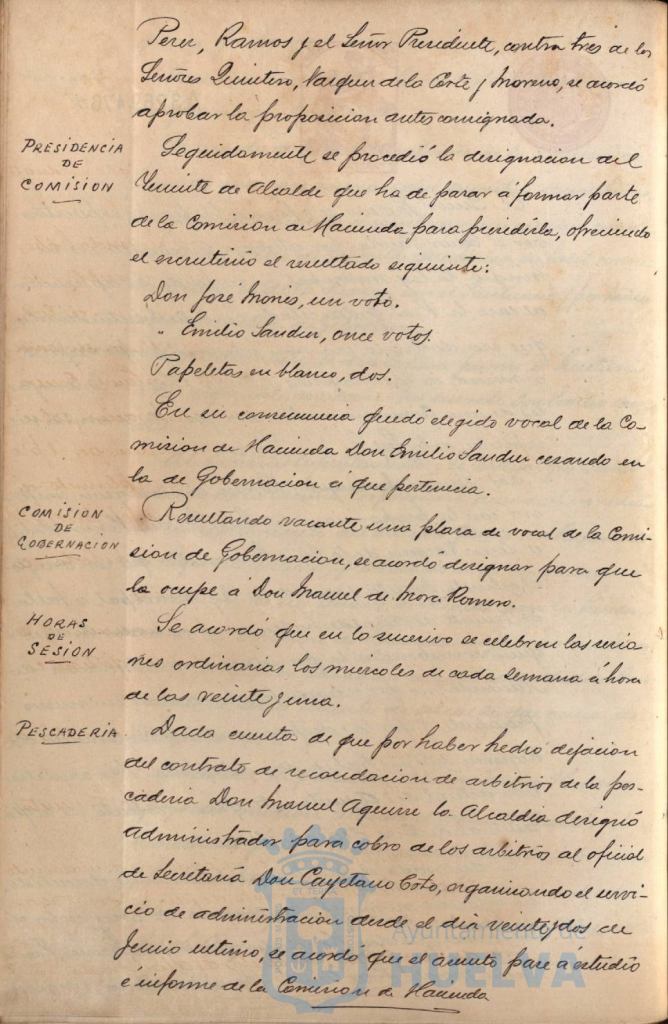 Perez, Ramos y el Señor Presidente, contra tres de los
Señores Quintero, Vazquez de la Corte y Moreno, se acordó
aprobar la proposicion antes consignada.
PRESIDENCIA
DE
COMISION
Seguidamente se procedió la designacion del
Teniente de Alcalde que ha de pasar á formar parte
de la Comision de Hacienda para presidirla, ofreciendo
el escrutinio el resultado siguiente:
Don José Monis, un voto.
" Emilio Sander, once votos.
Papeletas en blanco, dos.
En su consecuencia quedó elegido vocal de la Co-
mision de Hacienda Don Emilio Sander cesando en
la de Gobernacion á que pertenecia.
COMISION
DE
GOBERNACION
Resultando vacante una plaza de vocal de la Comi-
sion de Gobernacion, se acordó designar para que
la ocupe á Don Manuel de Mora Romero.
HORAS
DE
SESION
Se acordó que en lo sucesivo se celebren las sesio
nes ordinarias los miercoles de cada semana á hora
de las veinte y una.
PESCADERIA
Dada cuenta de que por haber hecho dejacion
del contrato de recaudacion de arbitrios de la pes-
caderia Don Manuel Aguirre la Alcaldia designó
administrador para cobro de los arbitrios al oficial
de Secretaría Don Cayetano Coto, organizando el servi-
cio de administracion desde el dia veinte y dos de
Junio ultimo, se acordó que el asunto pase á estudio
é informe de la Comision de Hacienda
Ayuntamiento de
HUELVA